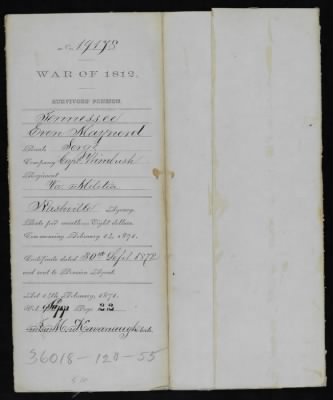 No 19178
WAR OF 1812.
SURVIVORS' PENSION
Tennessee
Even Maynord
Rank Serg.
Company Capt.
Regiment
Va. Militia
Nashville Agency
Rate per month Eight dollars
Commencing February 14, 1871.
Certificate dated 30th Sept. 1872
and sent to Pension Agent.
Act 14th February, 1871.
Vol. Page 22
E. M. Kavanaugh Clerk.
36018-128-55